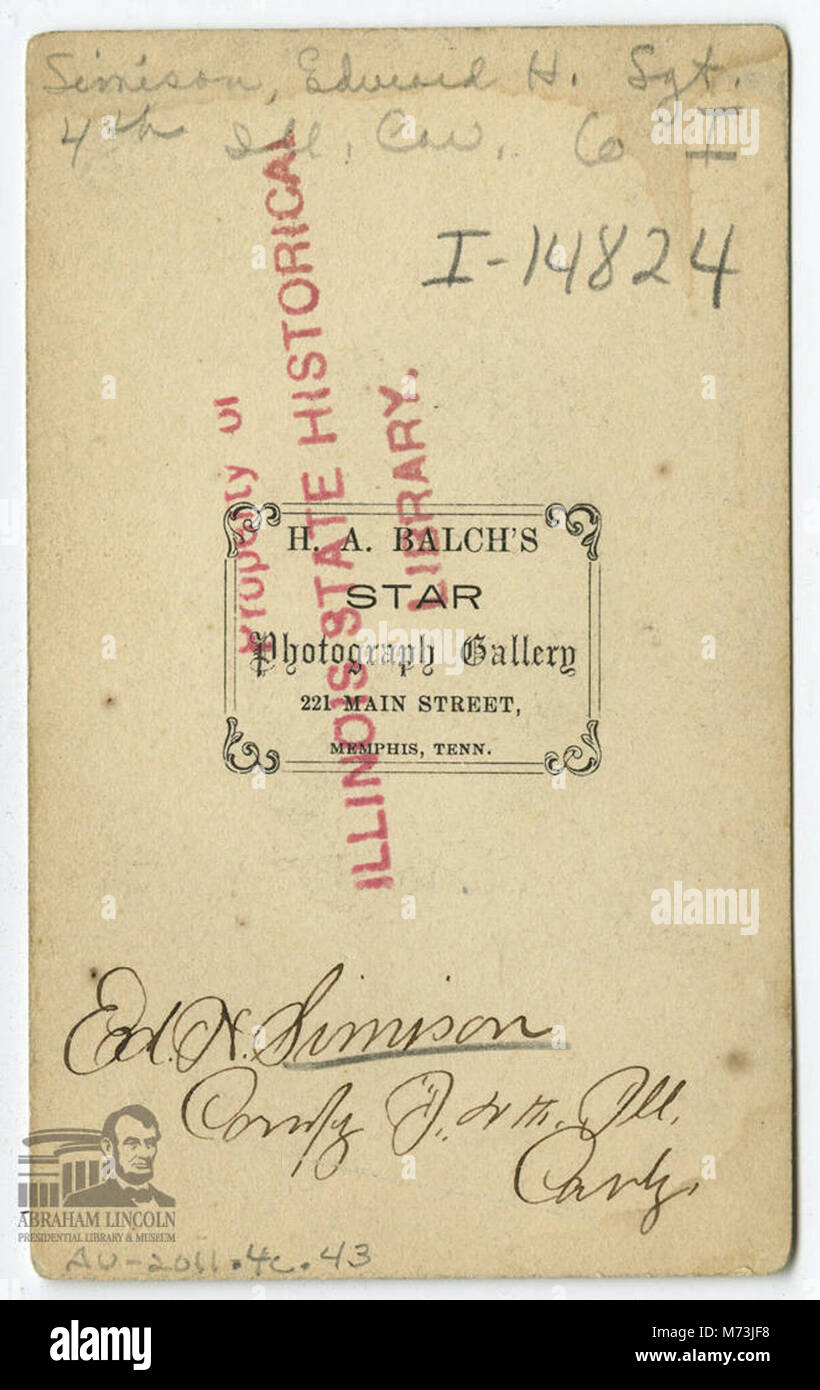 Simison, Edward H. Sgt.
4th Ill, Cav. Co I
I-14824
Property of
ILLINOIS STATE HISTORICAL
LIBRARY.
H. A. BALCH'S
STAR
Photograph Gallery
221 MAIN STREET,
MEMPHIS, TENN.
Ed. H. Simison
Comp'y "I", 4th. Ill.
Cavly.
ABRAHAM LINCOLN
PRESIDENTIAL LIBRARY & MUSEUM
AV-2011.4c.43
alamy
alamy
alamy
Image ID: M73JF8
www.alamy.com